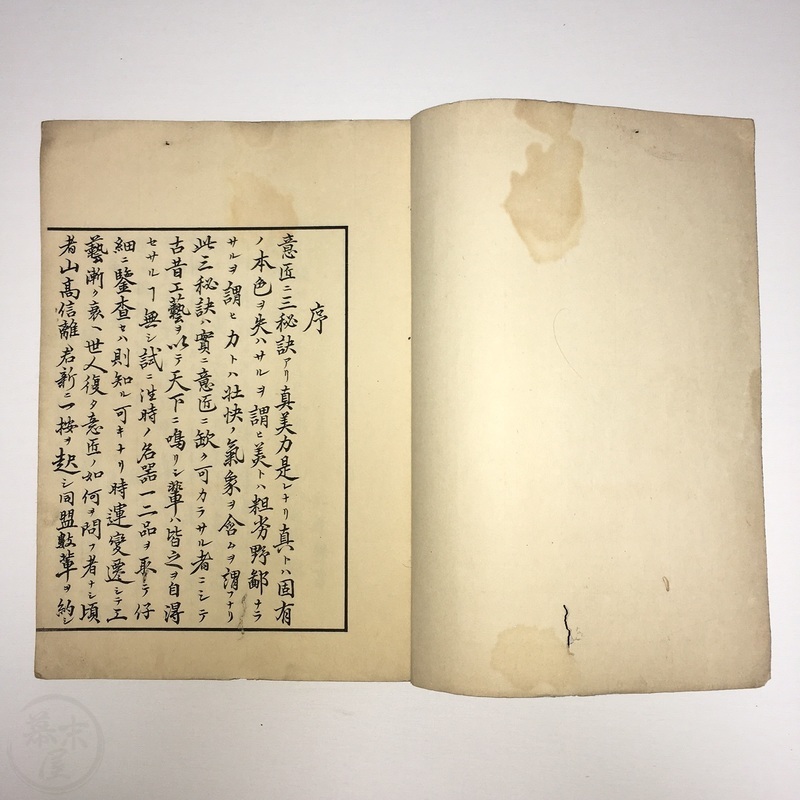 序
意匠ニ三秘訣アリ真美力是レナリ真トハ固有
ノ本色ヲ失ハサルヲ謂ヒ美トハ粗劣野鄙ナラ
サルヲ謂ヒ力トハ壮快ノ氣象ヲ含ムヲ謂フナリ
此三秘訣ハ實ニ意匠ニ欽ク可カラサル者ニシテ
古昔工藝ヲ以テ天下ニ鳴リシ輩ハ皆之ヲ自得
セサルヿ無シ試ニ往時ノ名器一二品ヲ取テ仔
細ニ鑒査セハ則知ル可キナリ時運變遷シテ工
藝漸ク衰ヘ世人復タ意匠ノ如何ヲ問フ者ナシ頃
者山高信離君新ニ一按ヲ起シ同盟數輩ヲ約シ
幕末屋